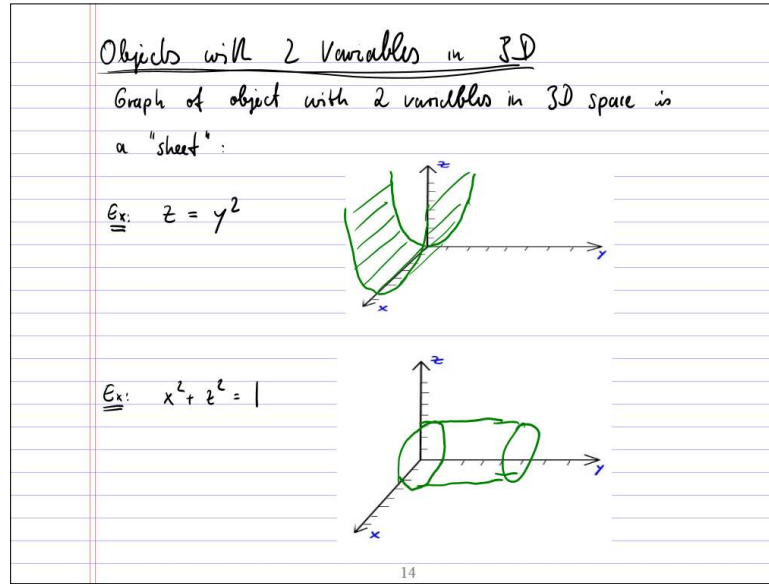 Objects with 2 Variables in 3D
Graph of object with 2 variables in 3D space is
a "sheet":
z
Ex: z = y²
y
x
z
Ex: x² + z² = 1
y
x
14